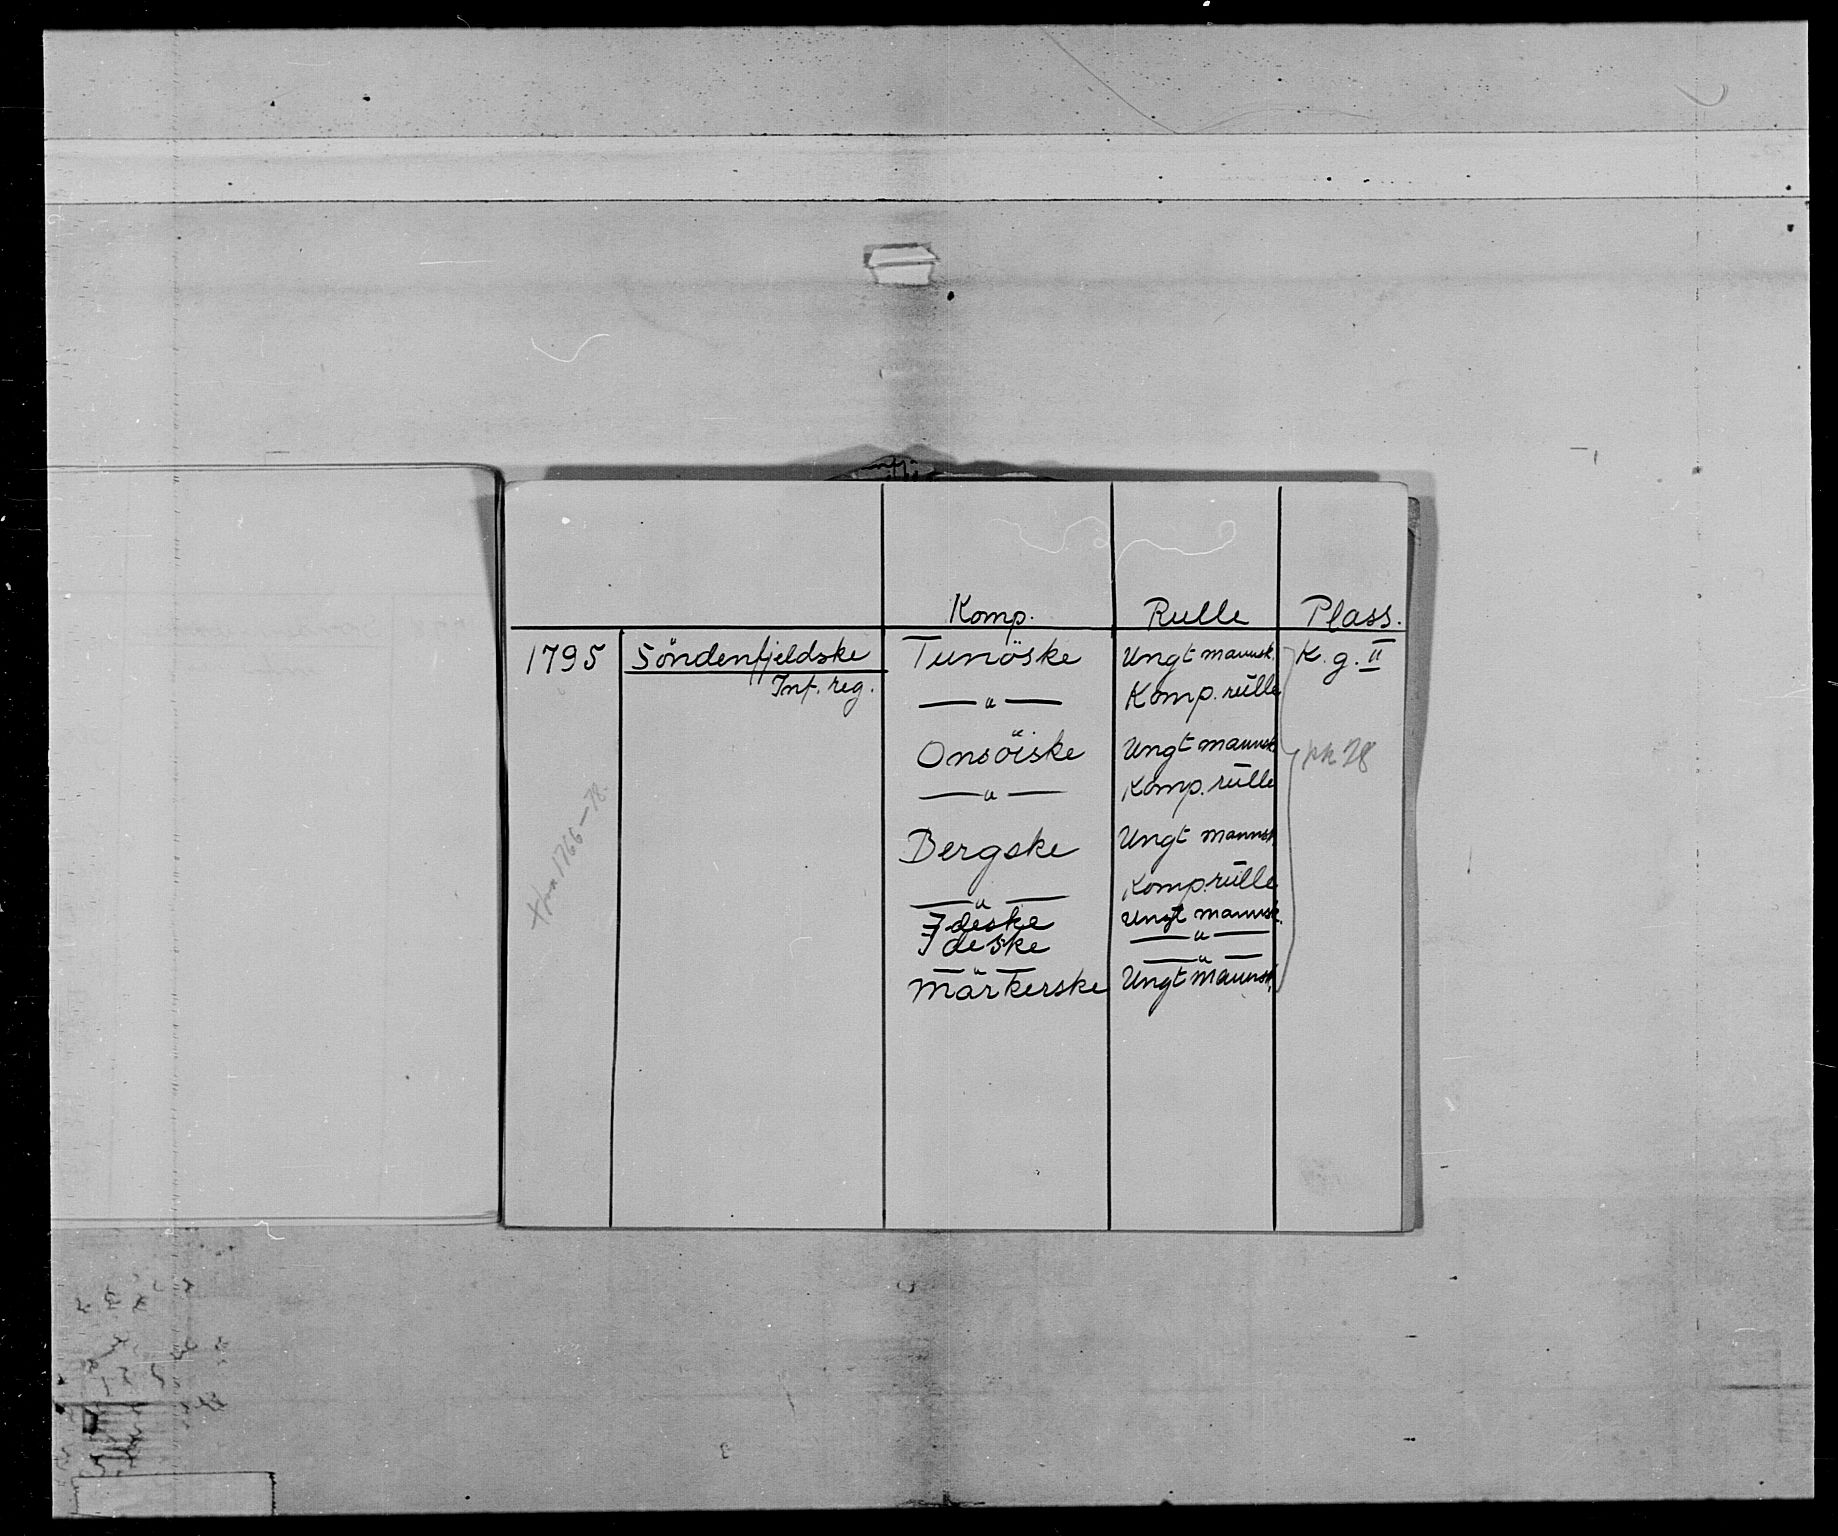 Komp. Rulle Plass.
1795 Söndenfjeldske Tunöske Ungt mannsk. K. g. II
Inf. reg. — " — Komp. rŭlle
Onsöiske Ungt mannsk
— " — Komp. rŭlle
pk 28
Bergske Ungt mannsk.
— " — Komp. rŭlle
Ideske Ungt mannsk.
Ideske — " —
— " — — " —
Markerske Ungt mannsk.
1766–78.